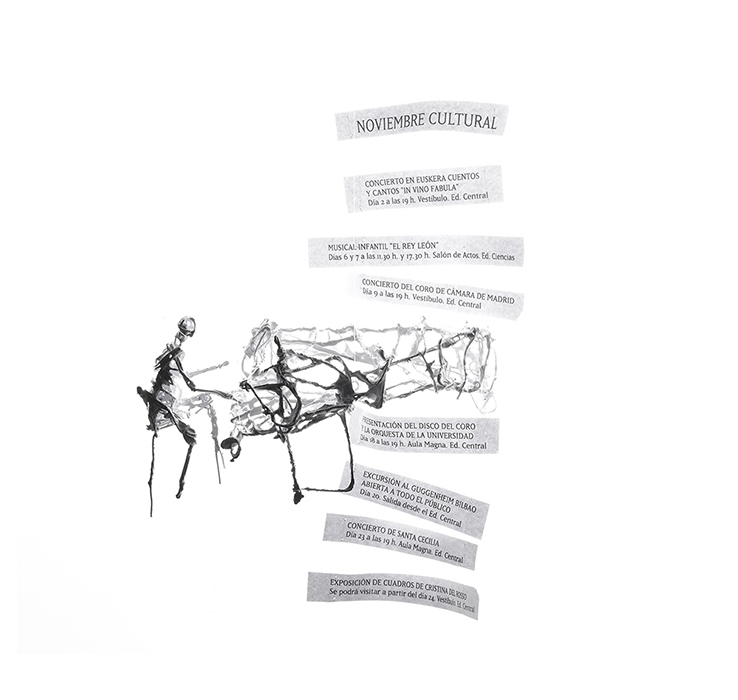 NOVIEMBRE CULTURAL
CONCIERTO EN EUSKERA CUENTOS
Y CANTOS "IN VINO FABULA"
Día 2 a las 19 h. Vestíbulo. Ed. Central
MUSICAL-INFANTIL "EL REY LEÓN"
Días 6 y 7 a las 11.30 h. y 17.30 h. Salón de Actos. Ed. Ciencias
CONCIERTO DEL CORO DE CÁMARA DE MADRID
Día 9 a las 19 h. Vestíbulo. Ed. Central
PRESENTACIÓN DEL DISCO DEL CORO
Y LA ORQUESTA DE LA UNIVERSIDAD
Día 18 a las 19 h. Aula Magna. Ed. Central
EXCURSIÓN AL GUGGENHEIM BILBAO
ABIERTA A TODO EL PÚBLICO
Día 20. Salida desde el Ed. Central
CONCIERTO DE SANTA CECILIA
Día 23 a las 19 h. Aula Magna. Ed. Central
EXPOSICIÓN DE CUADROS DE CRISTINA DEL ROSSO
Se podrá visitar a partir del día 24. Vestíbulo. Ed. Central